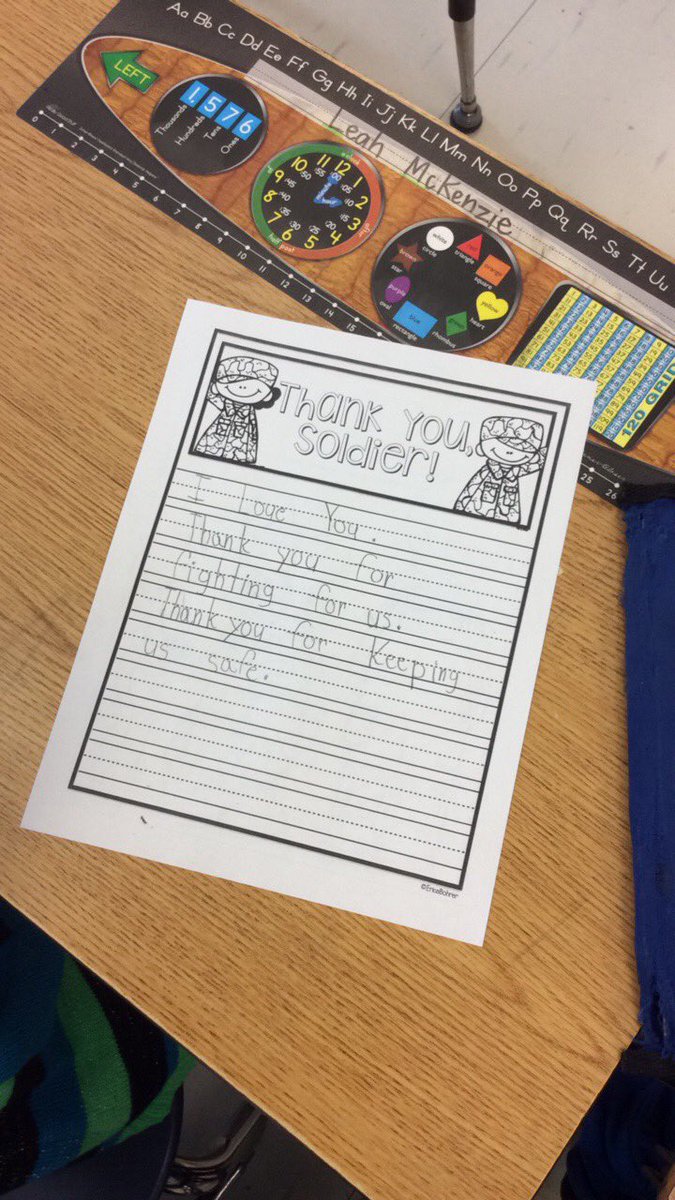 Aa Bb Cc Dd Ee Ff Gg Hh Ii Jj Kk Ll Mm Nn Oo Pp Qq Rr Ss Tt Uu
LEFT
1,576
Thousands
Hundreds
Tens
Ones
Leah McKenzie
11 12 1
10 2
9 3
8 4
7 6 5
:00 :05 :10 :15 :20 :25 :30 :35 :40 :45 :50 :55
half past
white
circle
red
triangle
orange
square
yellow
heart
green
rhombus
blue
rectangle
purple
oval
brown
star
120 GRID
0 1 2 3 4 5 6 7 8 9 10 11 12 13 14 15
25 26
Thank you,
soldier!
I Love You.
Thank you for
fighting for us.
Thank you for keeping
us safe.
©EricaBohrer